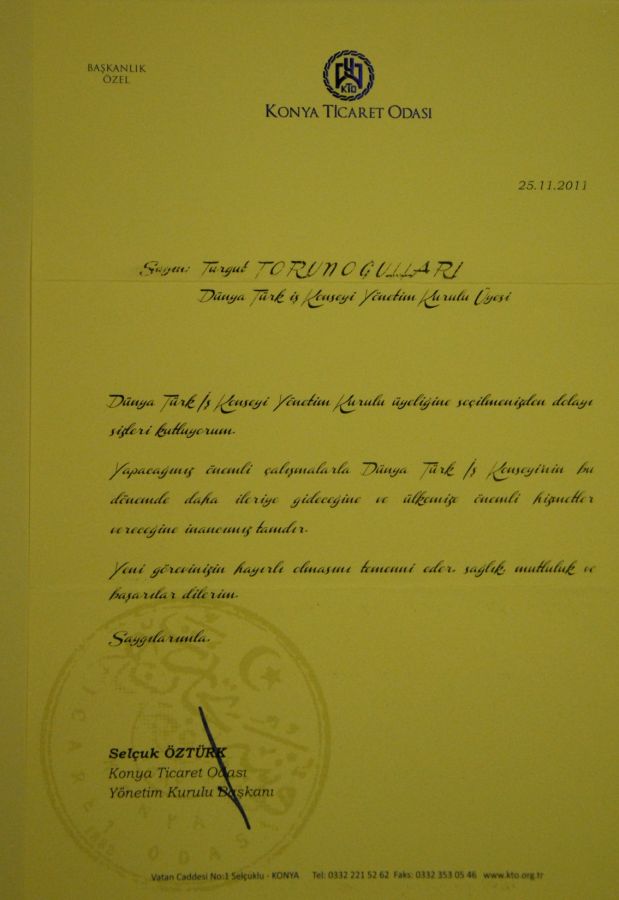 BAŞKANLIK
ÖZEL
KTO
KONYA TİCARET ODASI
25.11.2011
Sayın: Turgut TORUNOĞULLARI
Dünya Türk iş Konseyi Yönetim Kurulu Üyesi
Dünya Türk İş Konseyi Yönetim Kurulu üyeliğine seçilmenizden dolayı
sizleri kutluyorum.
Yapacağınız önemli çalışmalarla Dünya Türk İş Konseyi'nin bu
dönemde daha ileriye gideceğine ve ülkemize önemli hizmetler
vereceğine inancımız tamdır.
Yeni görevinizin hayırlı olmasını temenni eder, sağlık, mutluluk ve
başarılar dilerim.
Saygılarımla.
Selçuk ÖZTÜRK
Konya Ticaret Odası
Yönetim Kurulu Başkanı
KONYA TİCARET ODASI
Vatan Caddesi No:1 Selçuklu - KONYA Tel: 0332 221 52 62 Faks: 0332 353 05 46 www.kto.org.tr